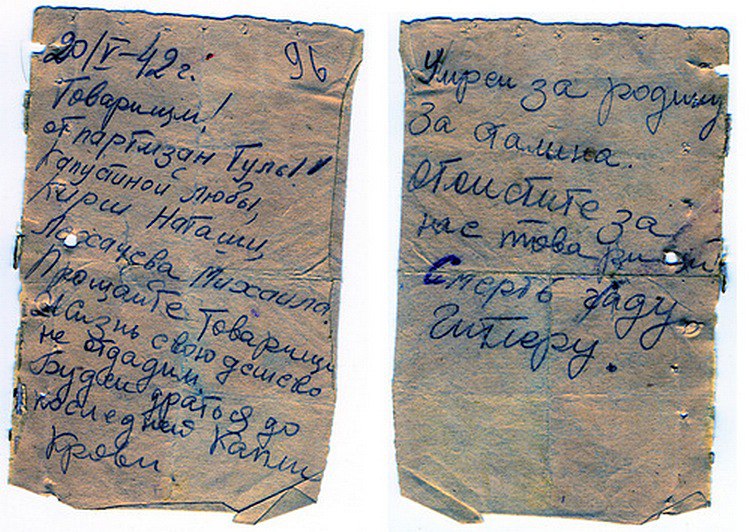 20/V-42 г. 96
Товарищи!
от партизан Тулы!
Капустиной Любы,
Кирш Наташи,
Лахачёва Михаила.
Прощайте Товарищи
Жизнь свою дешево
не отдадим.
Будем драться до
последней Капли
Крови
Умрем за родину
За Сталина.
отомстите за
нас товарищи
Смерть гаду
Гитлеру.